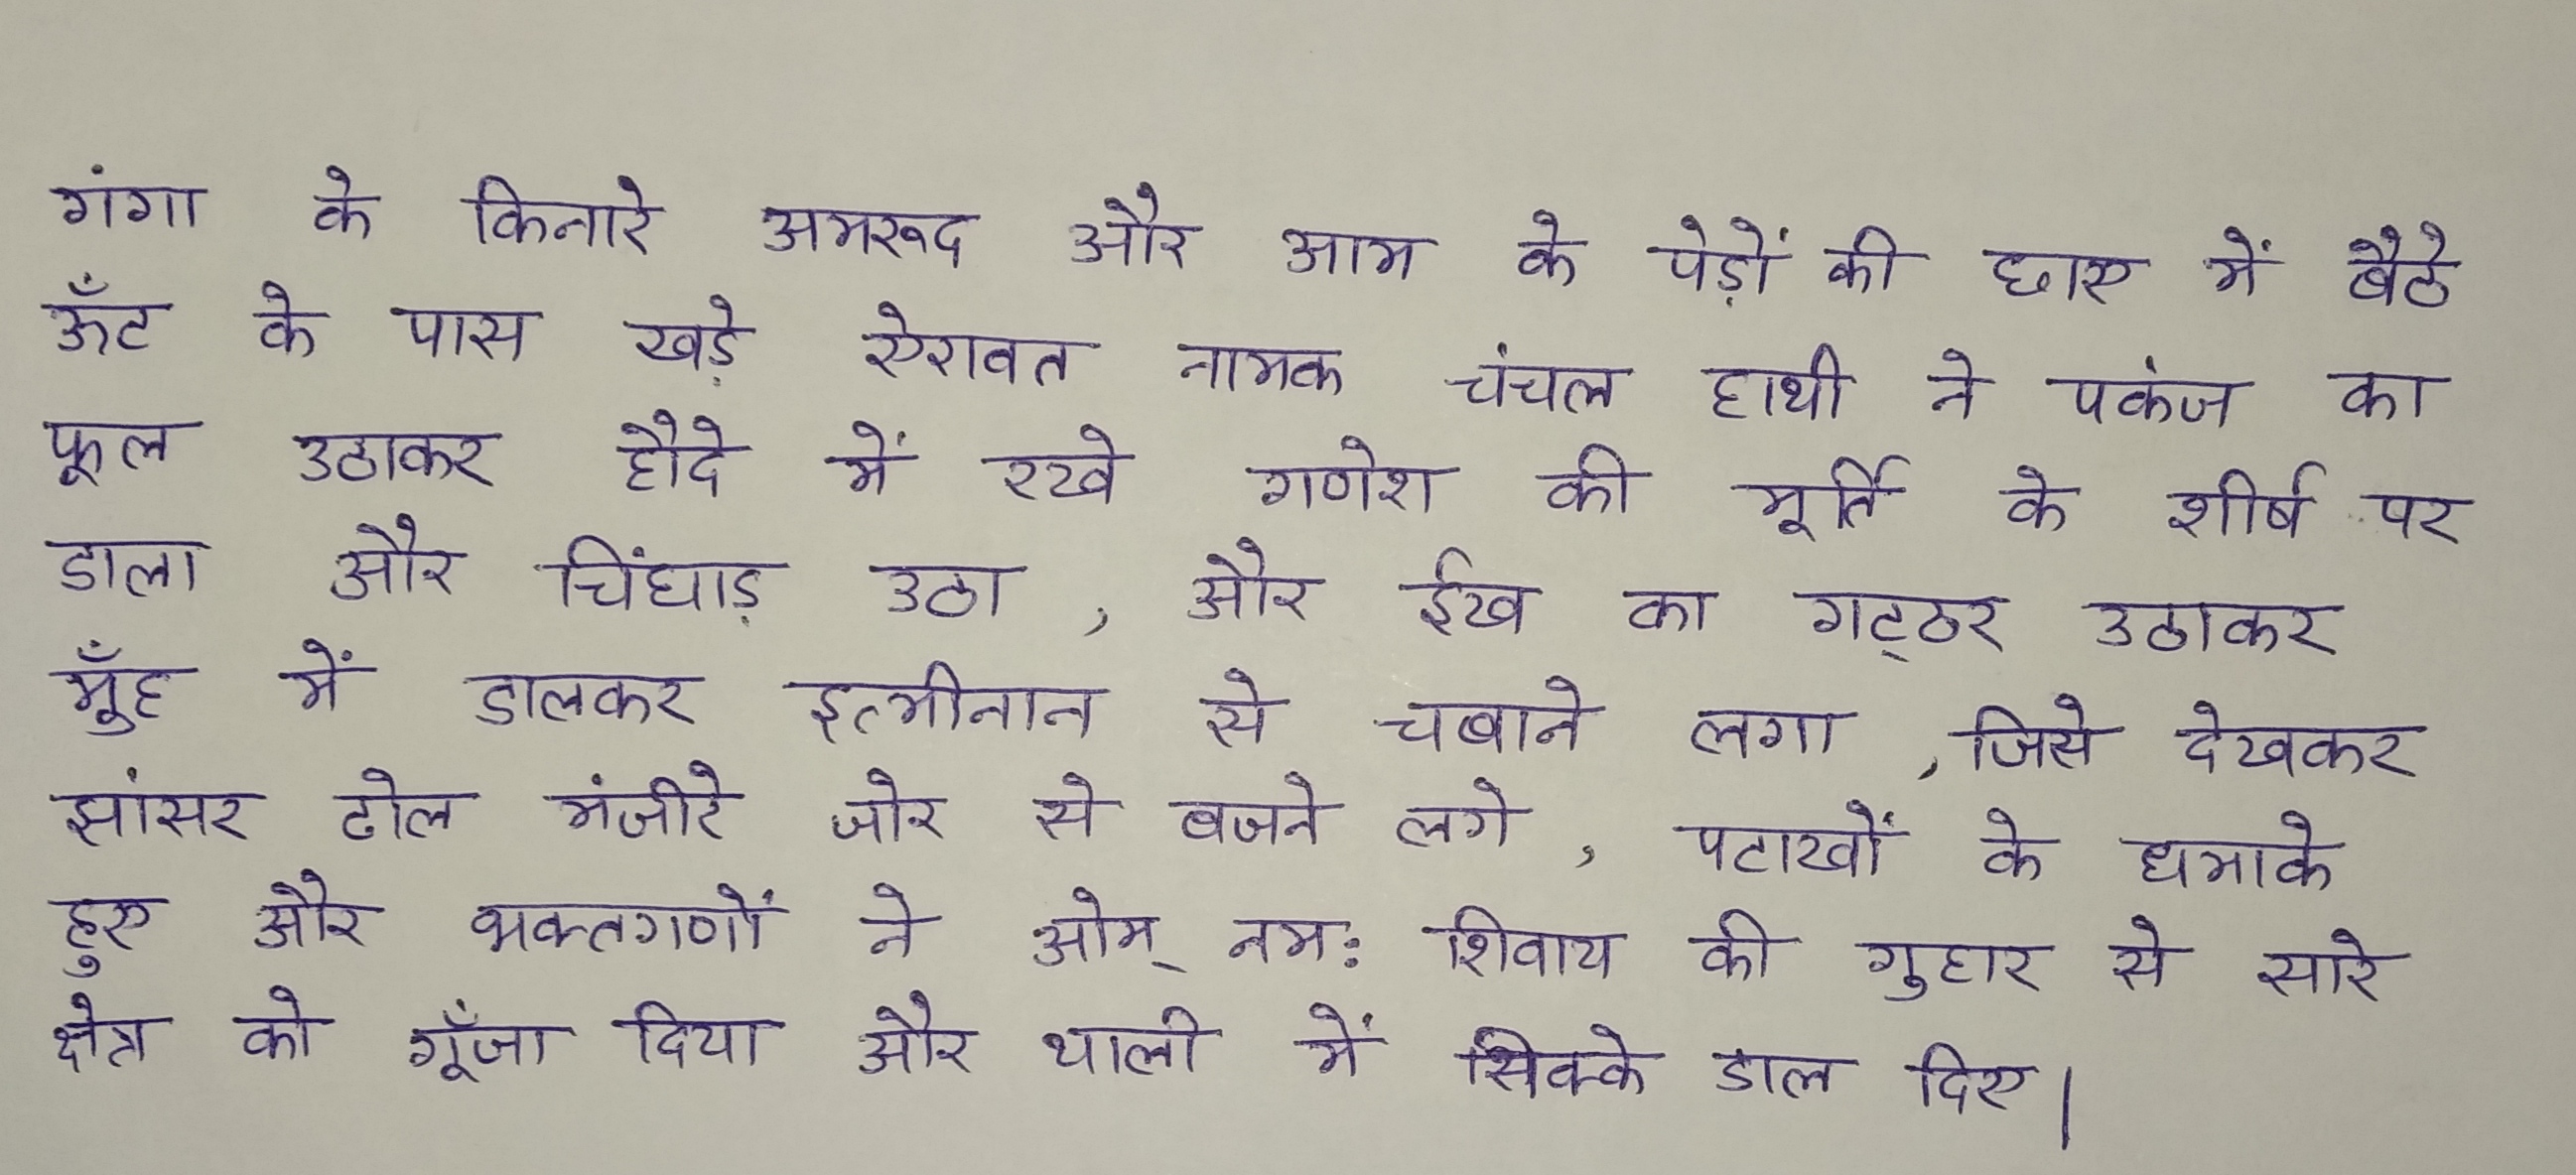 गंगा के किनारे अमरूद और आम के पेड़ों की छाए में बैठे
ऊँट के पास खड़े ऐरावत नामक चंचल हाथी ने पकंज का
फूल उठाकर हौदे में रखे गणेश की मूर्ति के शीर्ष पर
डाला और चिंघाड़ उठा , और ईख का गट्ठर उठाकर
मुँह में डालकर इत्मीनान से चबाने लगा , जिसे देखकर
झांसर ढोल मंजीरे जोर से बजने लगे , पटाखों के धमाके
हुए और भक्तगणों ने ओम् नमः शिवाय की गुहार से सारे
क्षेत्र को गूँजा दिया और थाली में सिक्के डाल दिए।